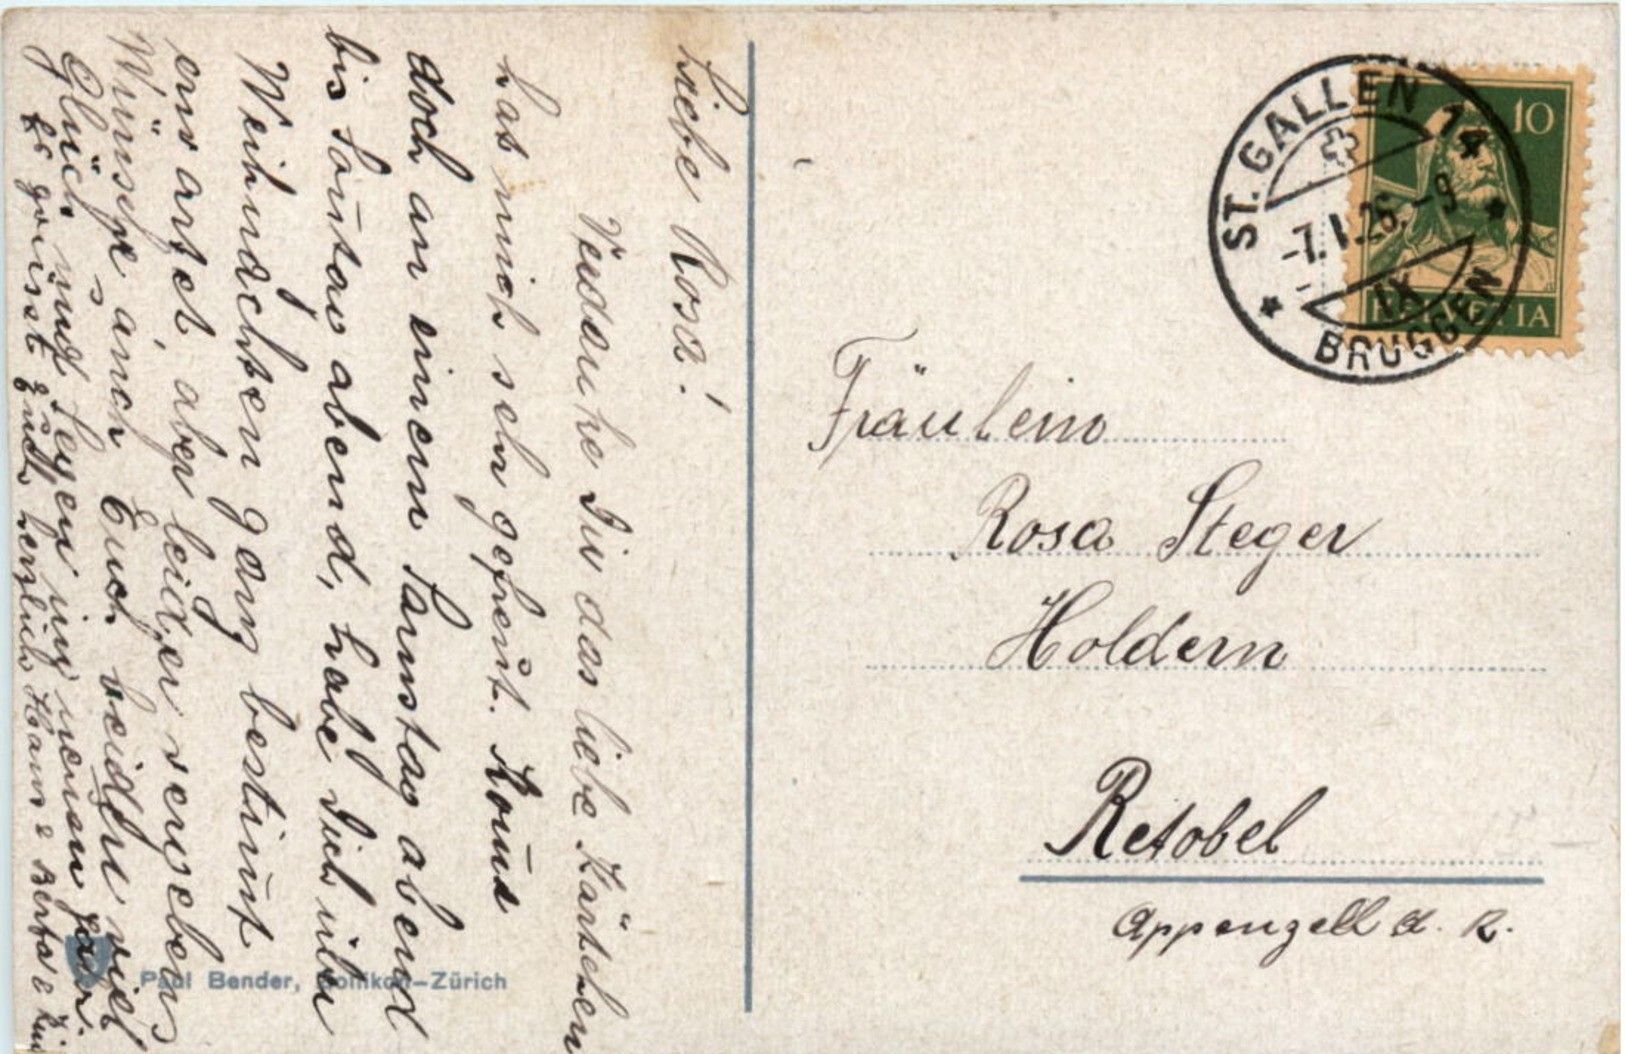 Liebe Rosa!
Verdanke Dir das liebe Kärtchen
hat mich sehr gefreut. Kom̄e
doch an einem Samstag abend
bis Son̄tag abend, habe Dich über
Weihnachten ganz bestim̄t
erwartet, aber leider vergebens
Wünsche auch Euch beiden viel
Glück und Segen im neuen Jahr.
Es grüsst Euch herzlich Hans & Berta &
Paul Bender, Zollikon-Zürich
ST. GALLEN 14
-7.I.26.-9
IX
BRUGGEN
10
HELVETIA
Fräulein
Rosa Steger
Holdern
Retobel
Appenzell A. R.